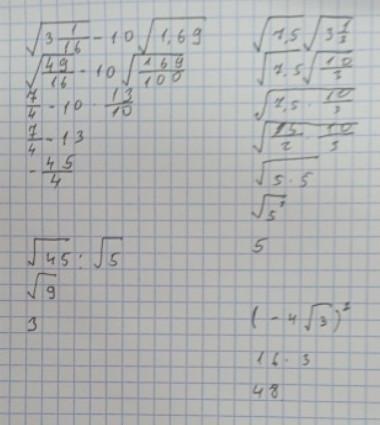 √(3 1/16) - 10 √(1,69)
√(49/16) - 10 √(169/100)
7/4 - 10 · 13/10
7/4 - 13
- 45/4
√45 : √5
√9
3
√(7,5) √(3 1/3)
√(7,5) √(10/3)
√(7,5 · 10/3)
√(15/2 · 10/3)
√(5 · 5)
√(5²)
5
(- 4 √3)²
16 · 3
48